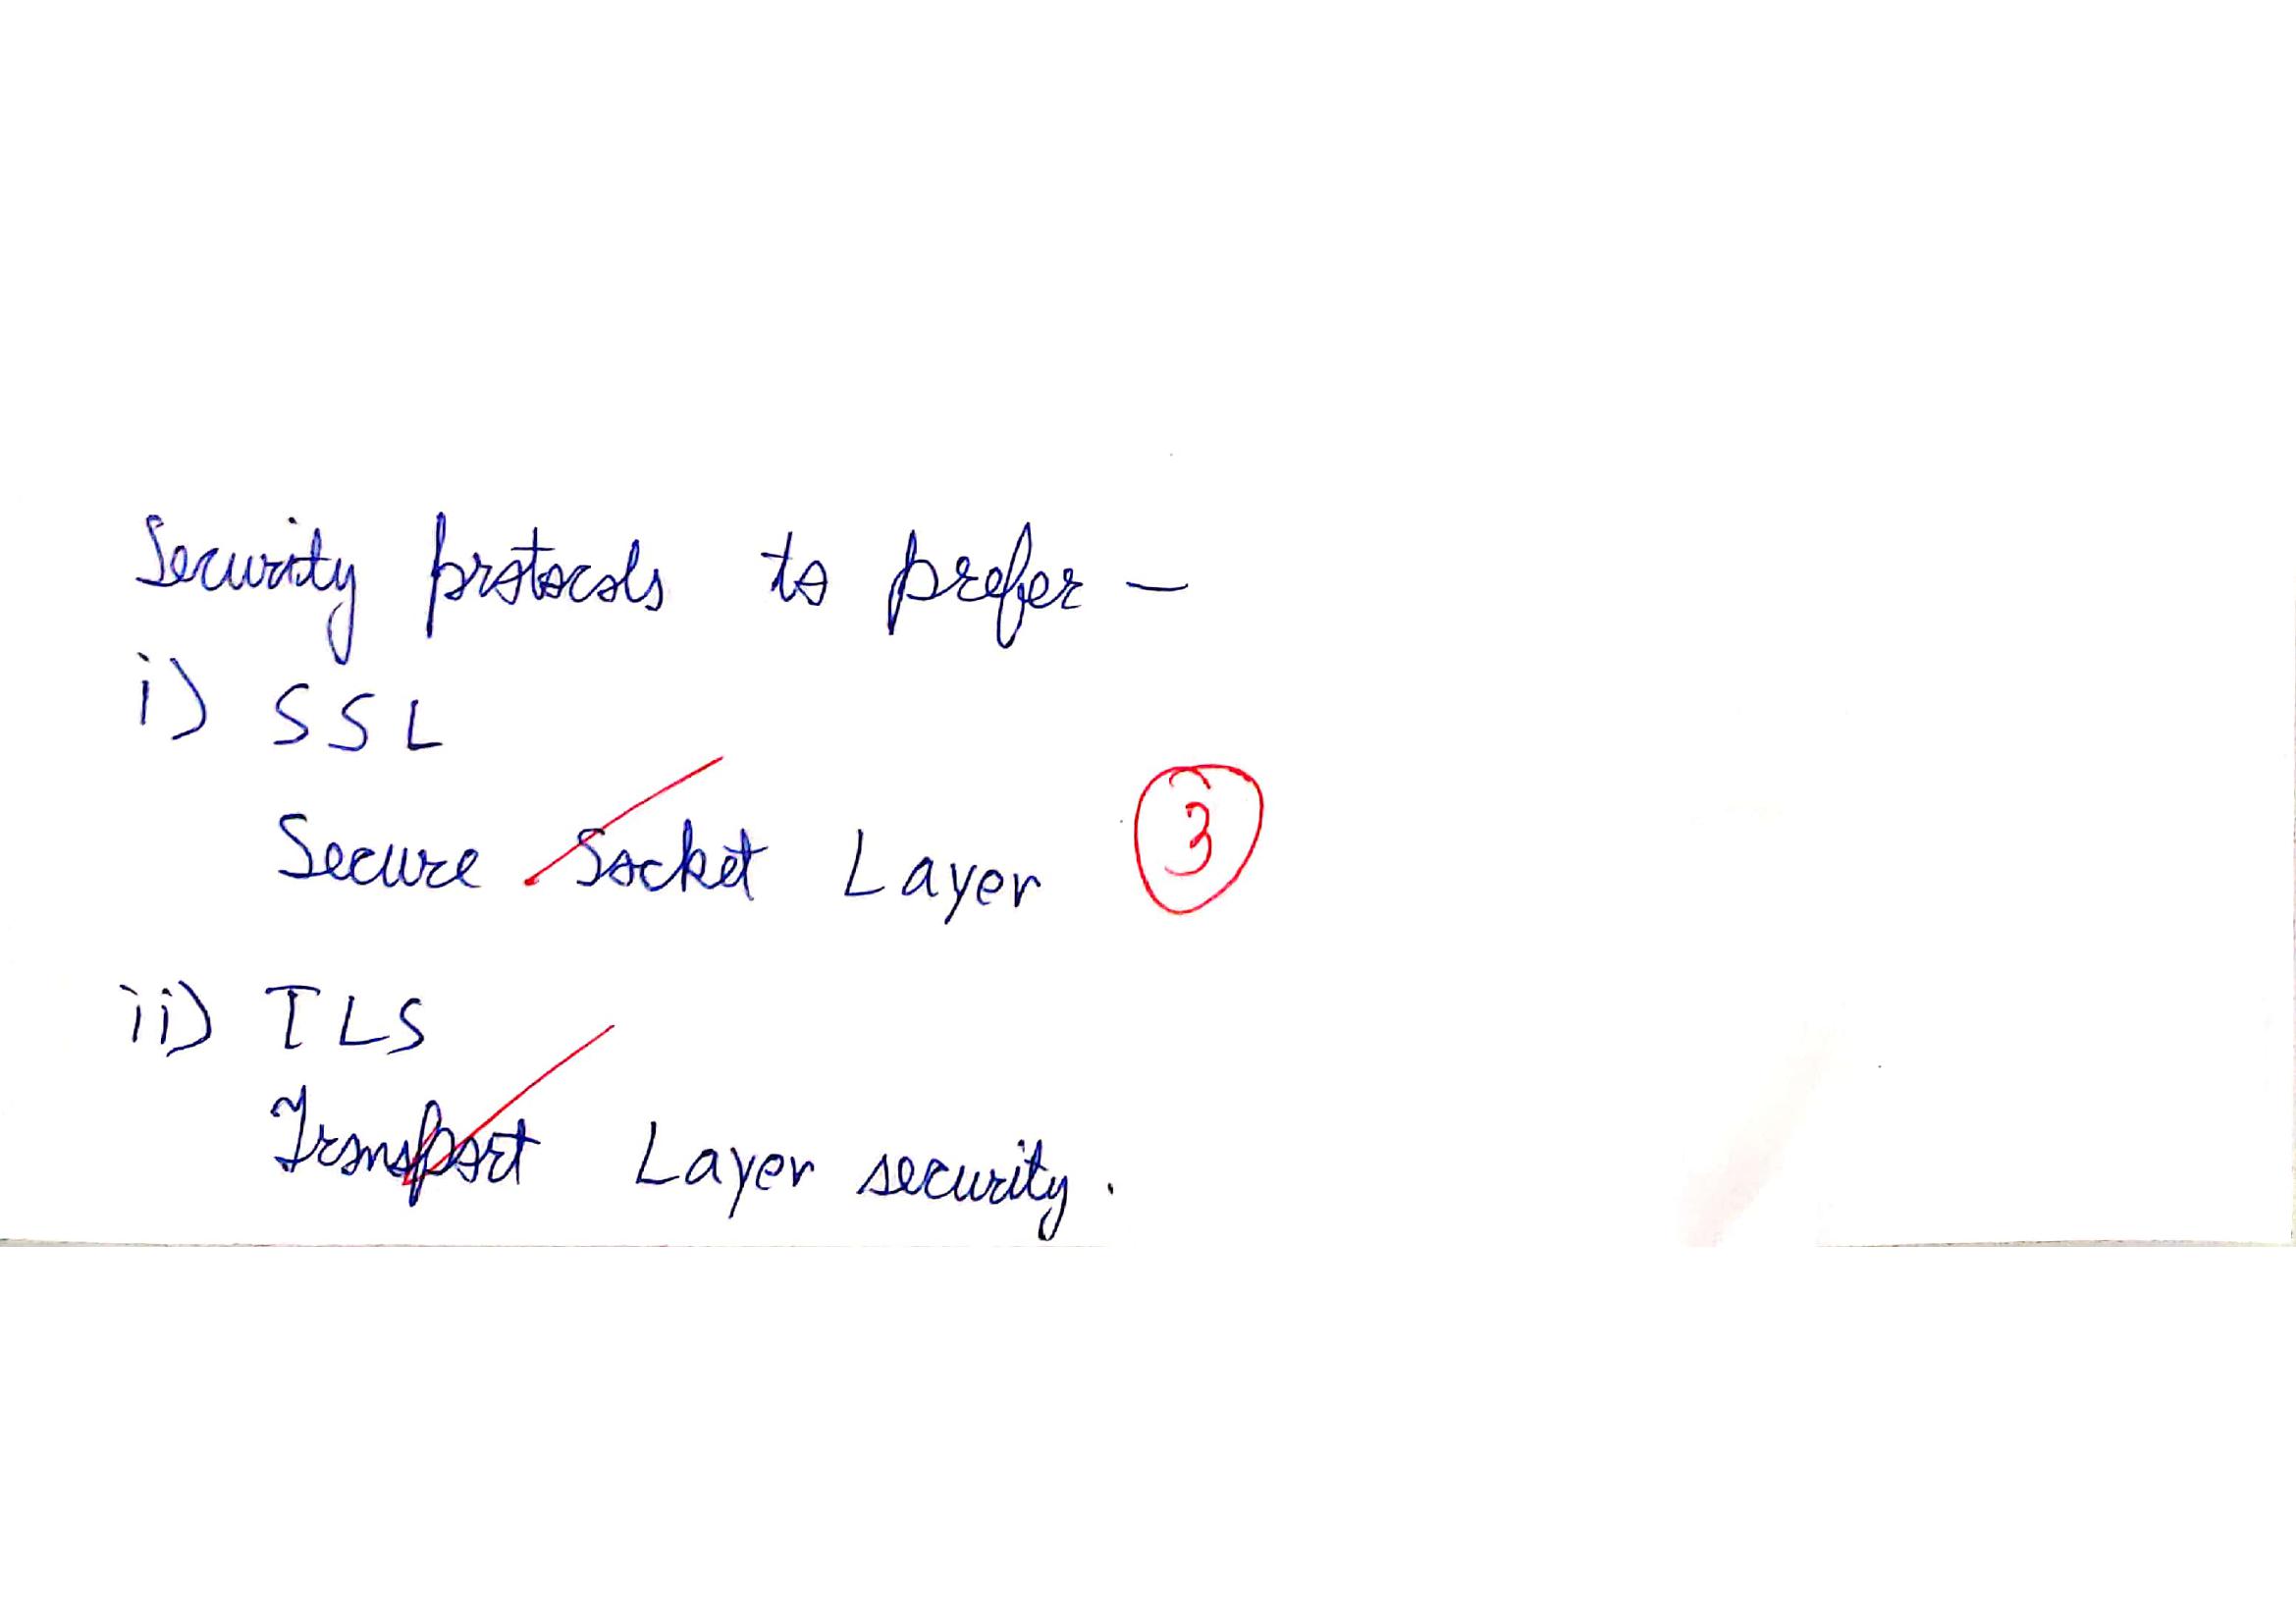 Security protocols to prefer -
i) SSL
Secure Socket Layer
3
ii) TLS
Transport Layer security.